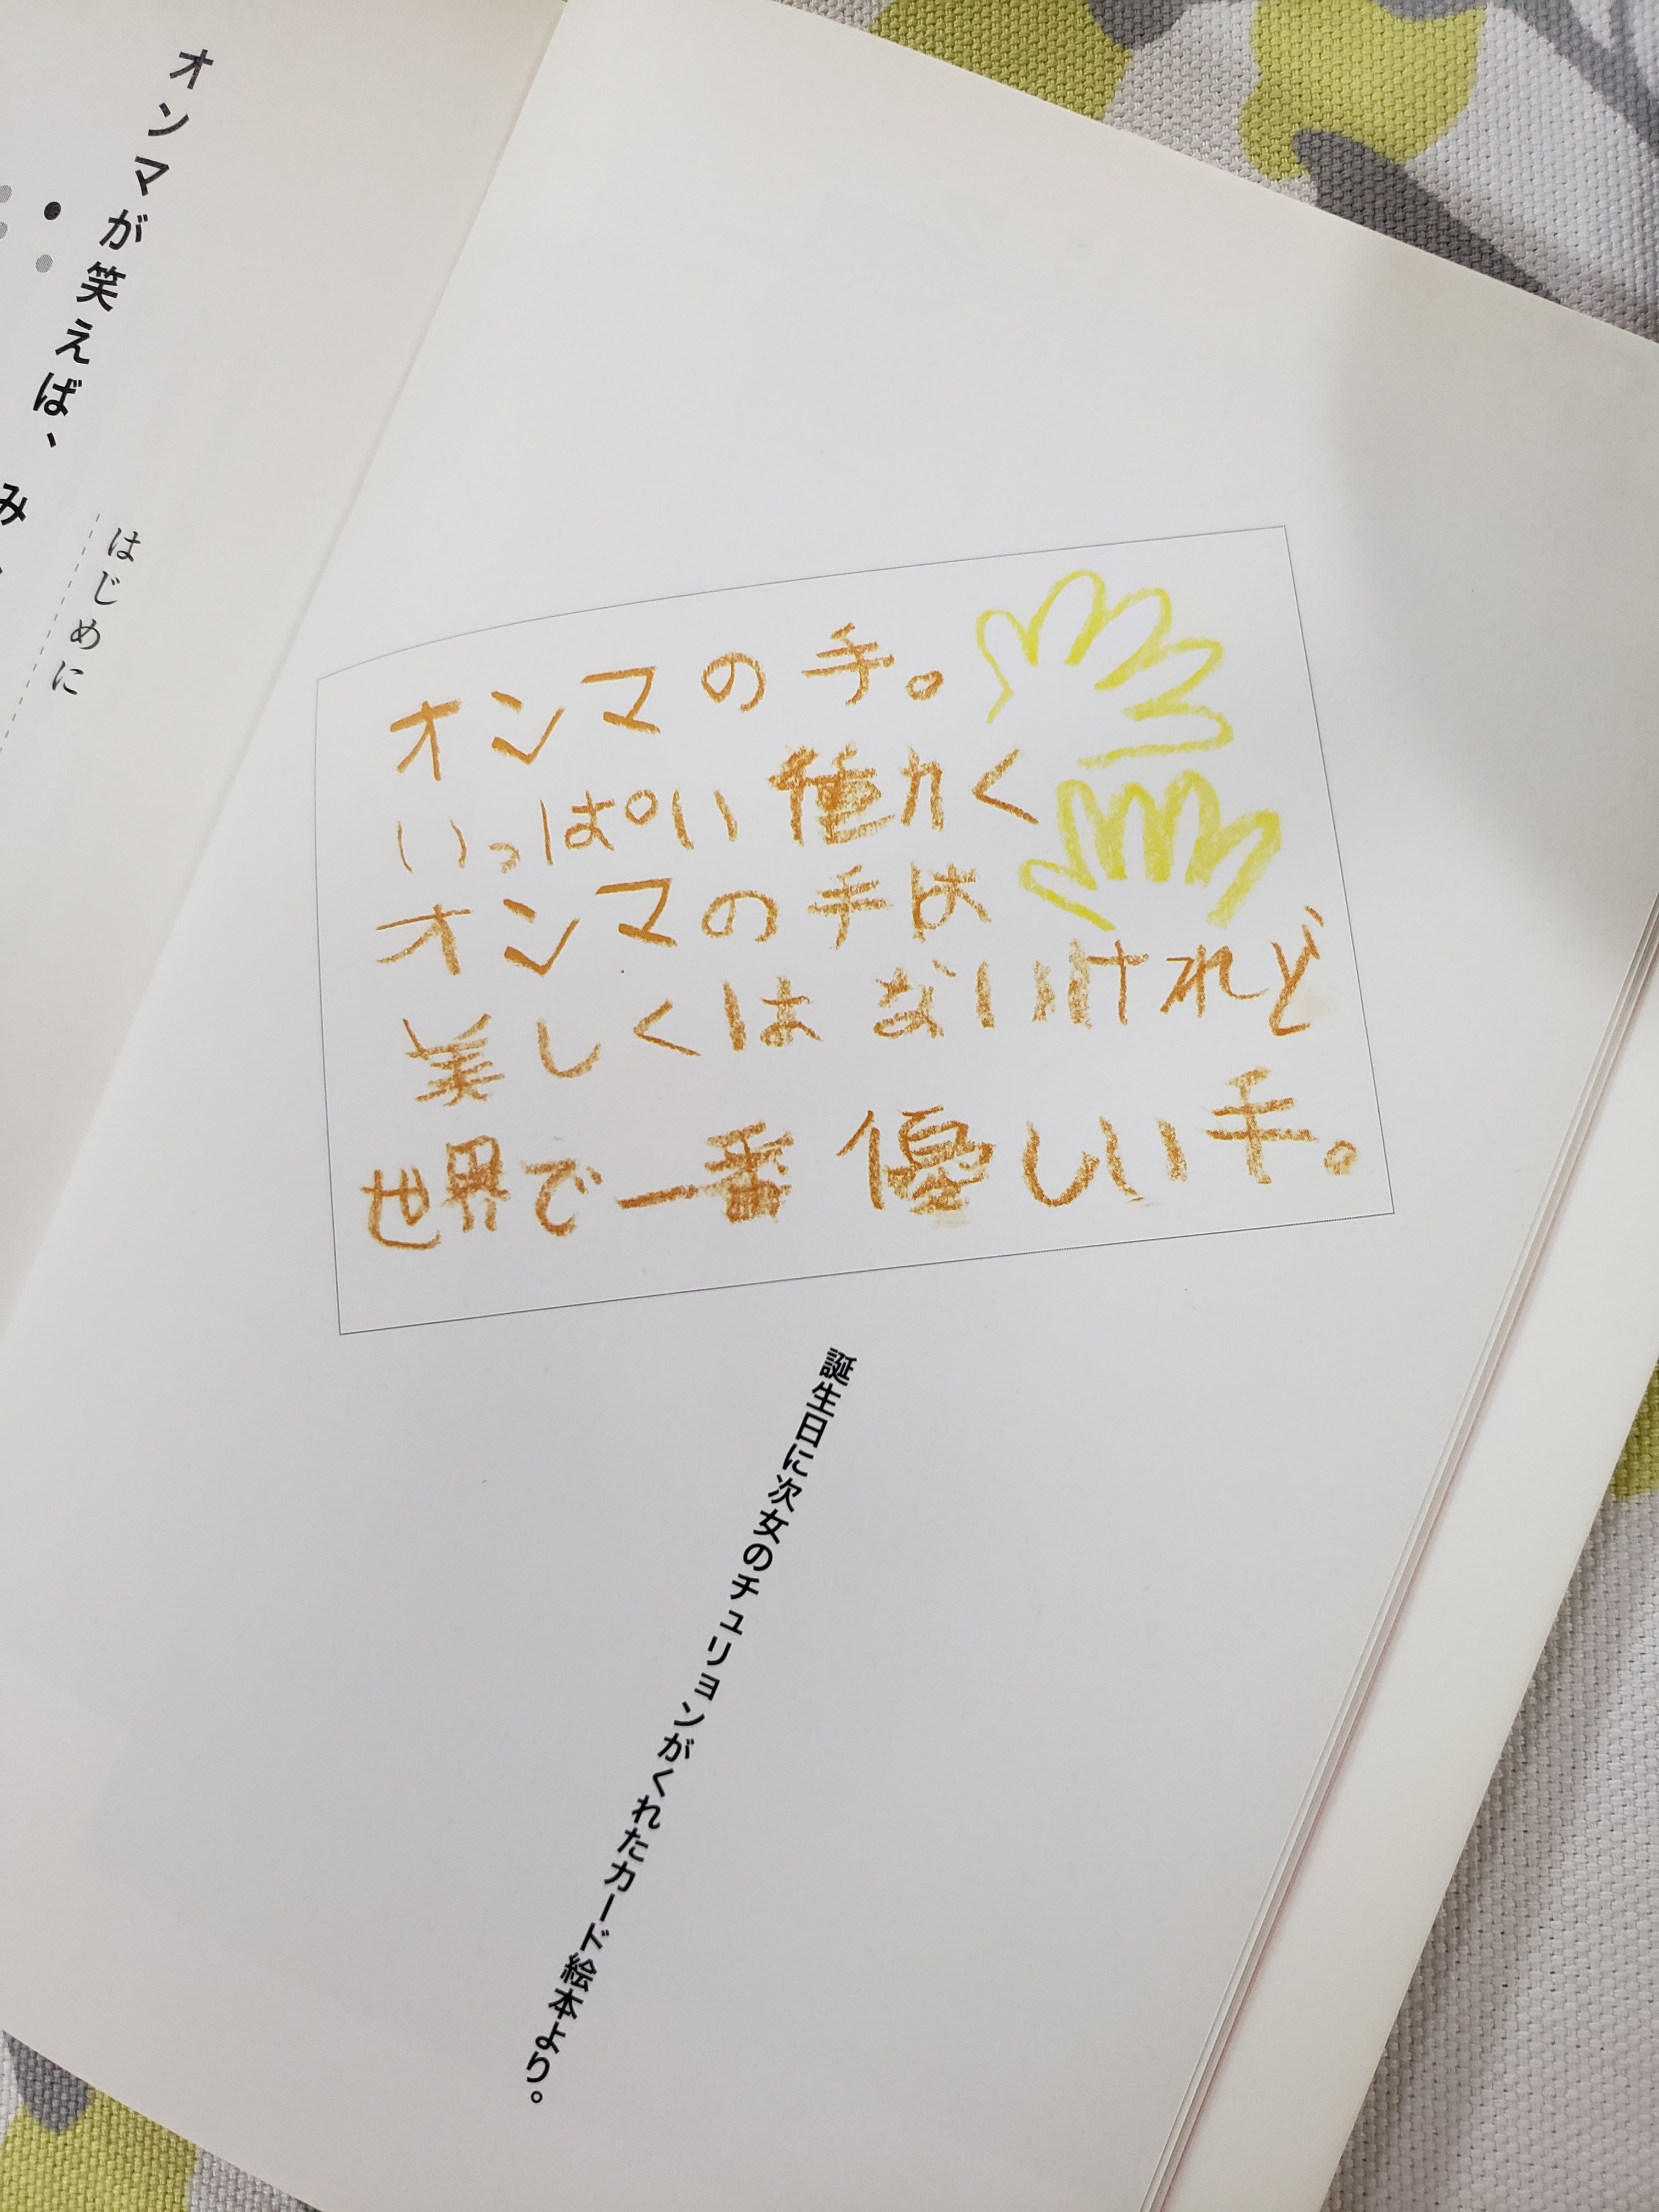 オンマが笑えば、み
はじめに
オンマの手。
いっぱい働く
オンマの手は
美しくはないけれど
世界で一番優しい手。
誕生日に次女のチュリョンがくれたカード絵本より。